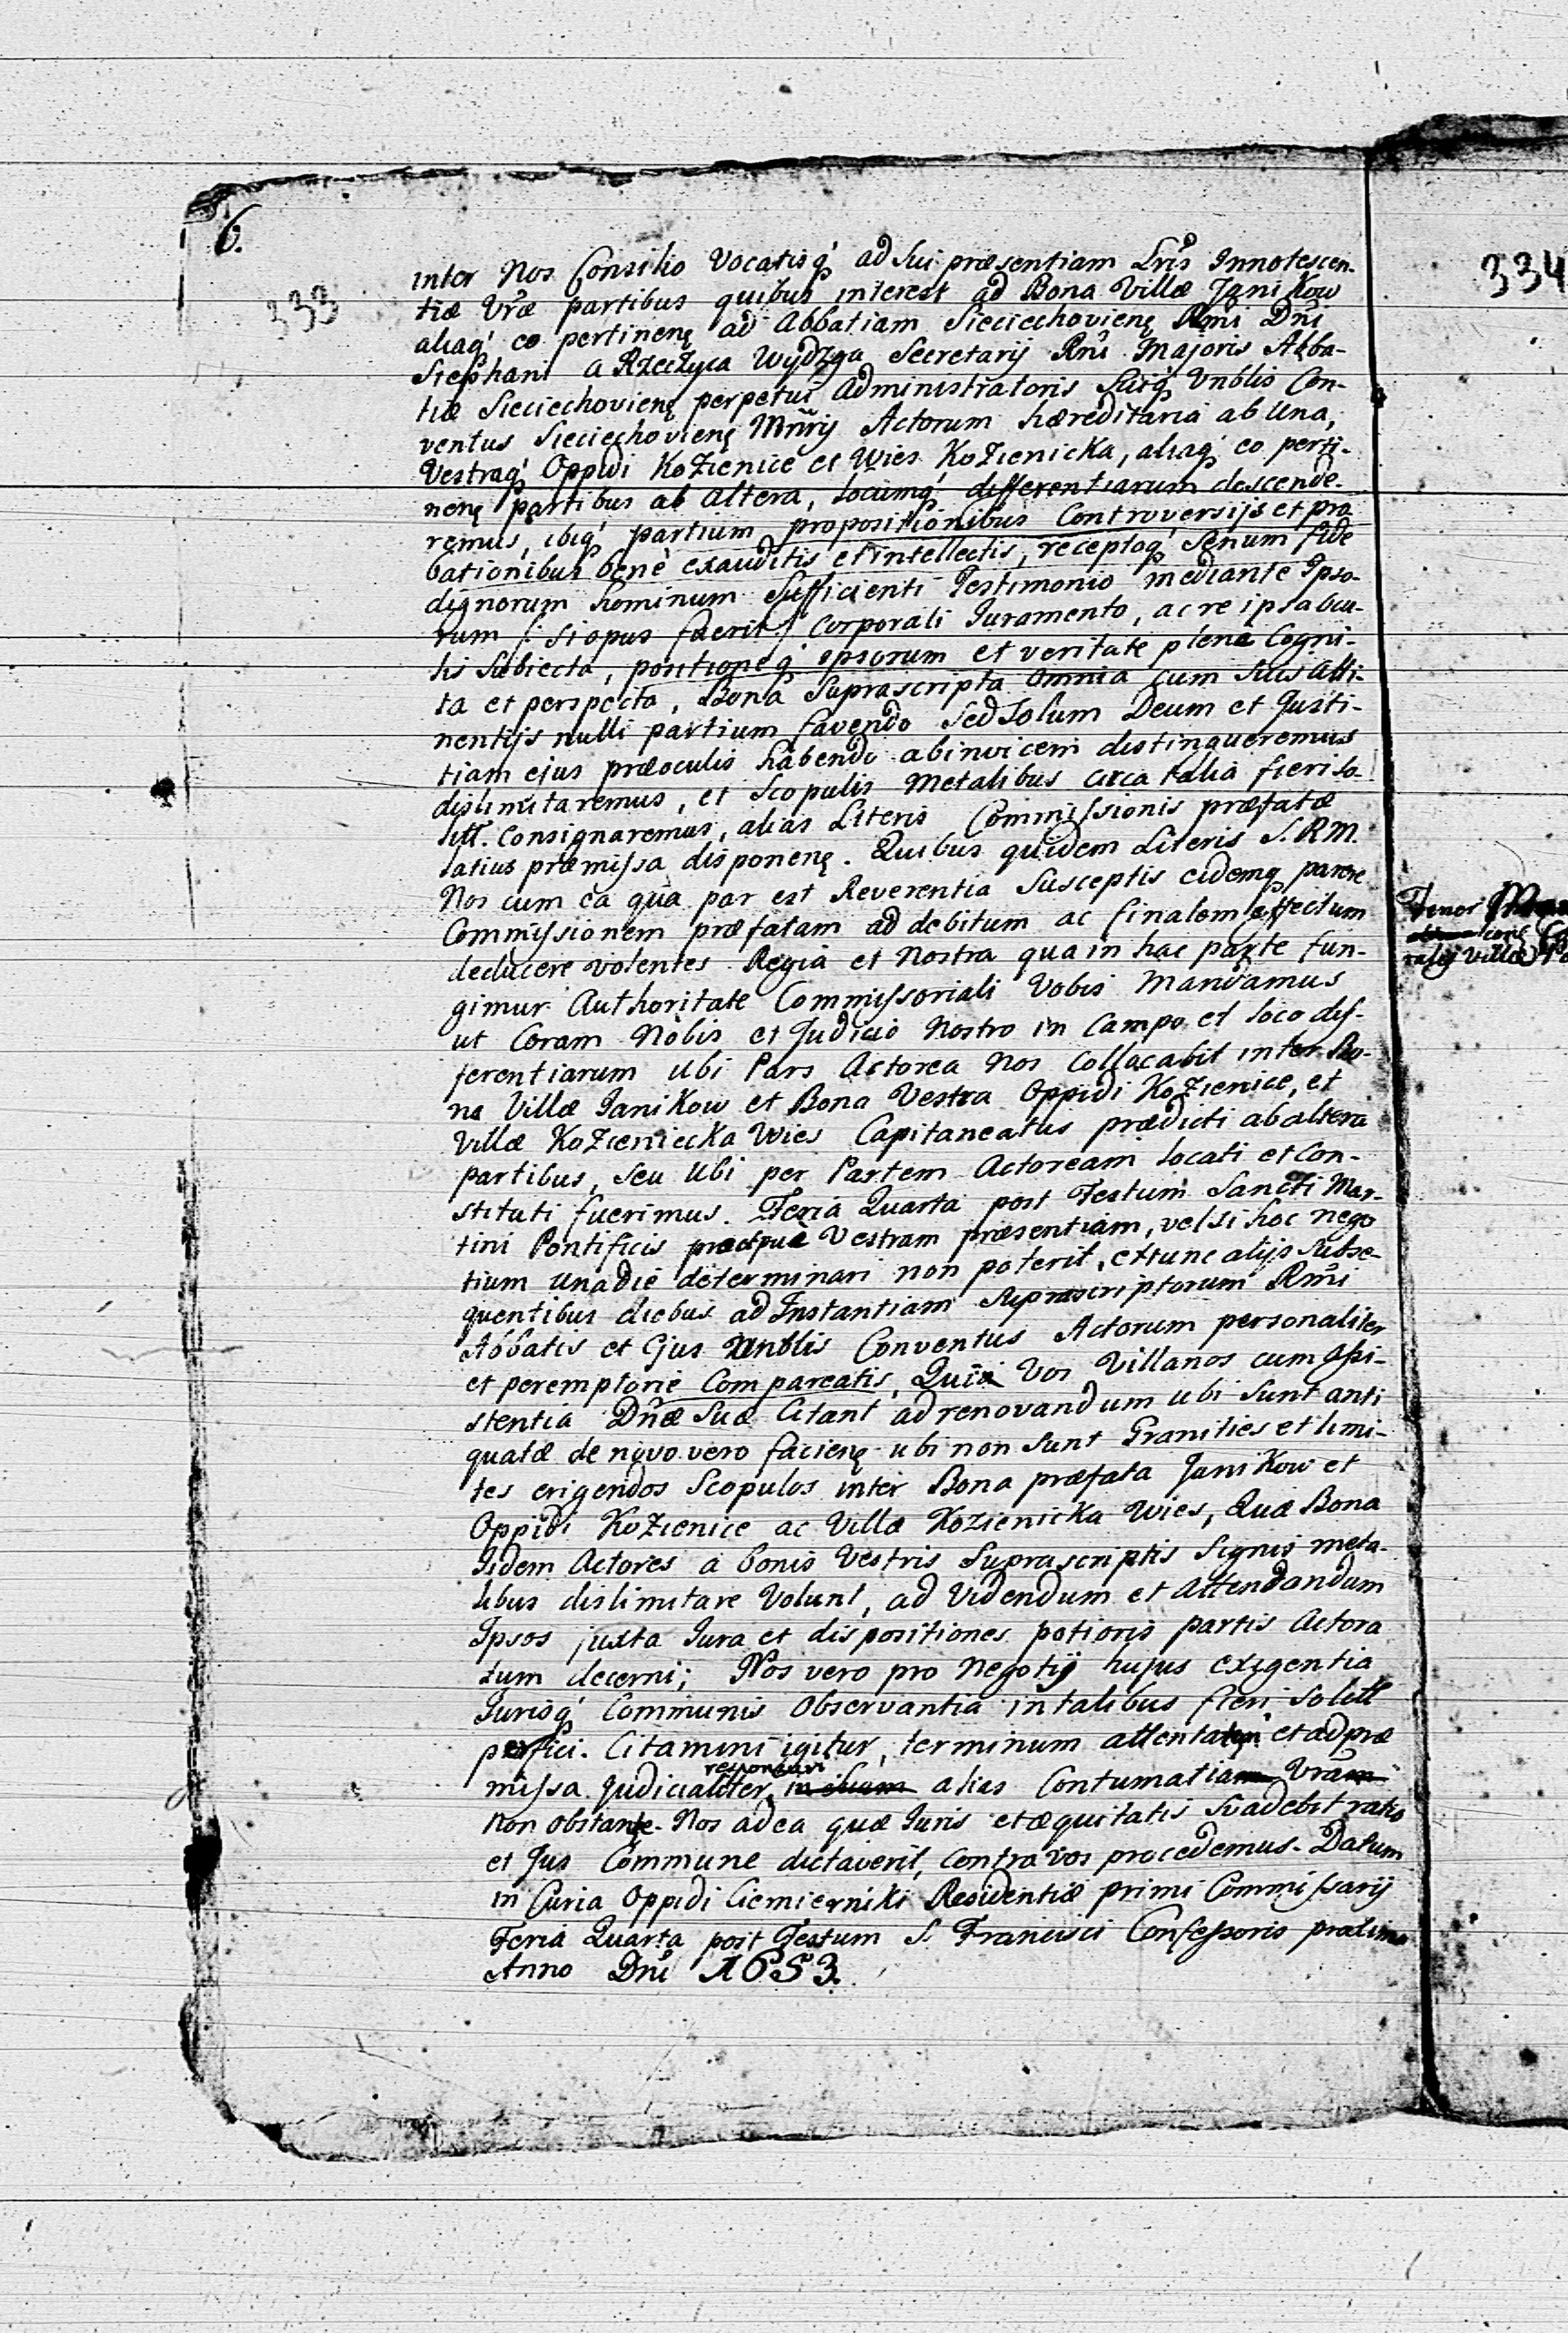 6.
333
334
inter Nos Consilio Vocatisq́ ad sui præsentiam Lrīs Innotescen-
tiæ Vræ partibus quibus interest ad Bona Villæ Janikow
aliaq́ eo pertinenę ad Abbatiam Sieciechovienę Rmi Dni
Stephani a Rzeczyca Wydzga Secretarij Rni Majoris Abba-
tiæ Sieciechovienę perpetui Administratoris Suiq́ Vnblis Con-
ventus Sieciechovienę Mnrij Actorum hæreditaria ab Una,
Vestraq́ Oppidi Kozienice et Wies Kozienicka, aliaq́ eo perti-
nenę partibus ab altera, Locumq́ differentiarum descende-
remus, ibiq́ partium propositionibus Controversijs et pro
bationibus benè exauditis et intellectis, receptoq́ Senum fide
dignorum hominum Sufficienti Testimonio mediante Ipso-
rum /: si opus fuerit :/ Corporali Juramento, ac re ipsa ocu-
lis Subiecta, positioneq́ ipsorum et veritate plene Cogni-
ta et perspecta, Bona Suprascripta Omnia cum suis Atti-
nentijs nulli partium favendo sed Solum Deum et Justi-
tiam ejus præoculis habendo abinvicem distingueremus
dislimitaremus, et Scopulis Metalibus circa talia fieri so-
litt. Consignaremus, alias Literis Commissionis præfatæ
latius præmissa disponenę. Quibus quidem Literis S.R.M.
Nos cum ea qua par est Reverentia Susceptis eidemq́ parere
Commissionem præfatam ad debitum ac finalem effectum
deducere volentes Regia et Nostra qua in hac parte fun-
gimur Authoritate Commissoriali Vobis Mandamus
ut Coram Nobis et Judicio Nostro in Campo et loco dif-
ferentiarum Ubi Pars Actorea Nos Collocabit inter Bo-
na Villæ Janikow et Bona Vestra Oppidi Kozienice, et
Villæ Kozieniecka Wies Capitaneatus prædicti ab altera
partibus, Seu Ubi per Partem Actoream locati et Con-
stituti fuerimus. Feria Quarta post Festum Sancti Mar-
tini Pontificis præcipuè Vestram præsentiam, vel si hoc nego
tium una die determinari non poterit, extunc alijs Subse-
quentibus diebus ad Instantiam Suprascriptorum Rmi
Abbatis et Ejus Unblis Conventus Actorum personaliter
et peremptorie Compareatis, Quia Vos Villanos cum Assi-
stentia Dnæ Suæ Citant ad renovandum ubi Sunt anti
quatæ de novo vero facienę ubi non Sunt Granities et limi-
tes erigendos Scopulos inter Bona præfata Janikow et
Oppidi Kozienice ac Villæ Kozienicka Wies, Quæ Bona
Iidem Actores a bonis Vestris Suprascriptis Signis meta-
libus dislimitare Volunt, ad Videndum et Attendandum
Ipsos juxta Jura et dispositiones potioris partis Actora
tum decerni; Nos vero pro Negotij hujus exigentia
Jurisq́ Communis Observantia in talibus fieri solitt
perfici. Citamini igitur, terminum attentaturi et ad præ
missa Judicialiter responsuri in illum alias Contumatiam Vram
non obstante. Nos ad ea quæ Juris et æquitatis Svadebit ratio
et Jus Commune dictaverit, Contra vos procedemus. Datum
in Curia Oppidi Ciemierniki Residentiæ primi Commissarij
Feria Quarta post Festum S. Francisci Confessoris proxima
Anno Dni 1653.
Tenor
ralis Villæ